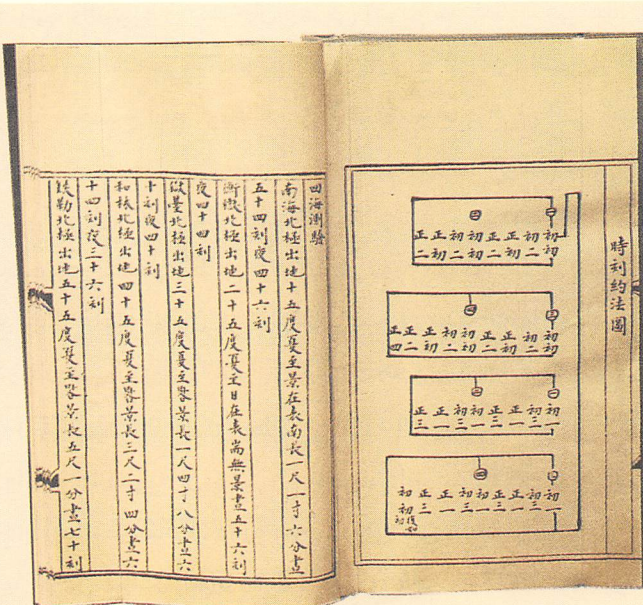 時刻約法圖
初初 初二 正初 正二 初初 初二 正初 正二
初初 初二 正初 正二 初初 初二 正初 正二 正四
初一 初三 正一 正三 初一 初三 正一 正三
初一 初三 正一 正三 初一 初三 正一 正三 初初
四海測驗
南海北極出地十五度夏至景在表南長一尺一寸六分晝
五十四刻夜四十六刻
衡嶽北極出地二十五度夏至日在表端無景晝五十六刻
夜四十四刻
嶽臺北極出地三十五度夏至晷景長一尺四寸八分晝六
十刻夜四十刻
和林北極出地四十五度夏至晷景長三尺二寸四分晝六
十四刻夜三十六刻
鐵勒北極出地五十五度夏至晷景長五尺一分晝七十刻